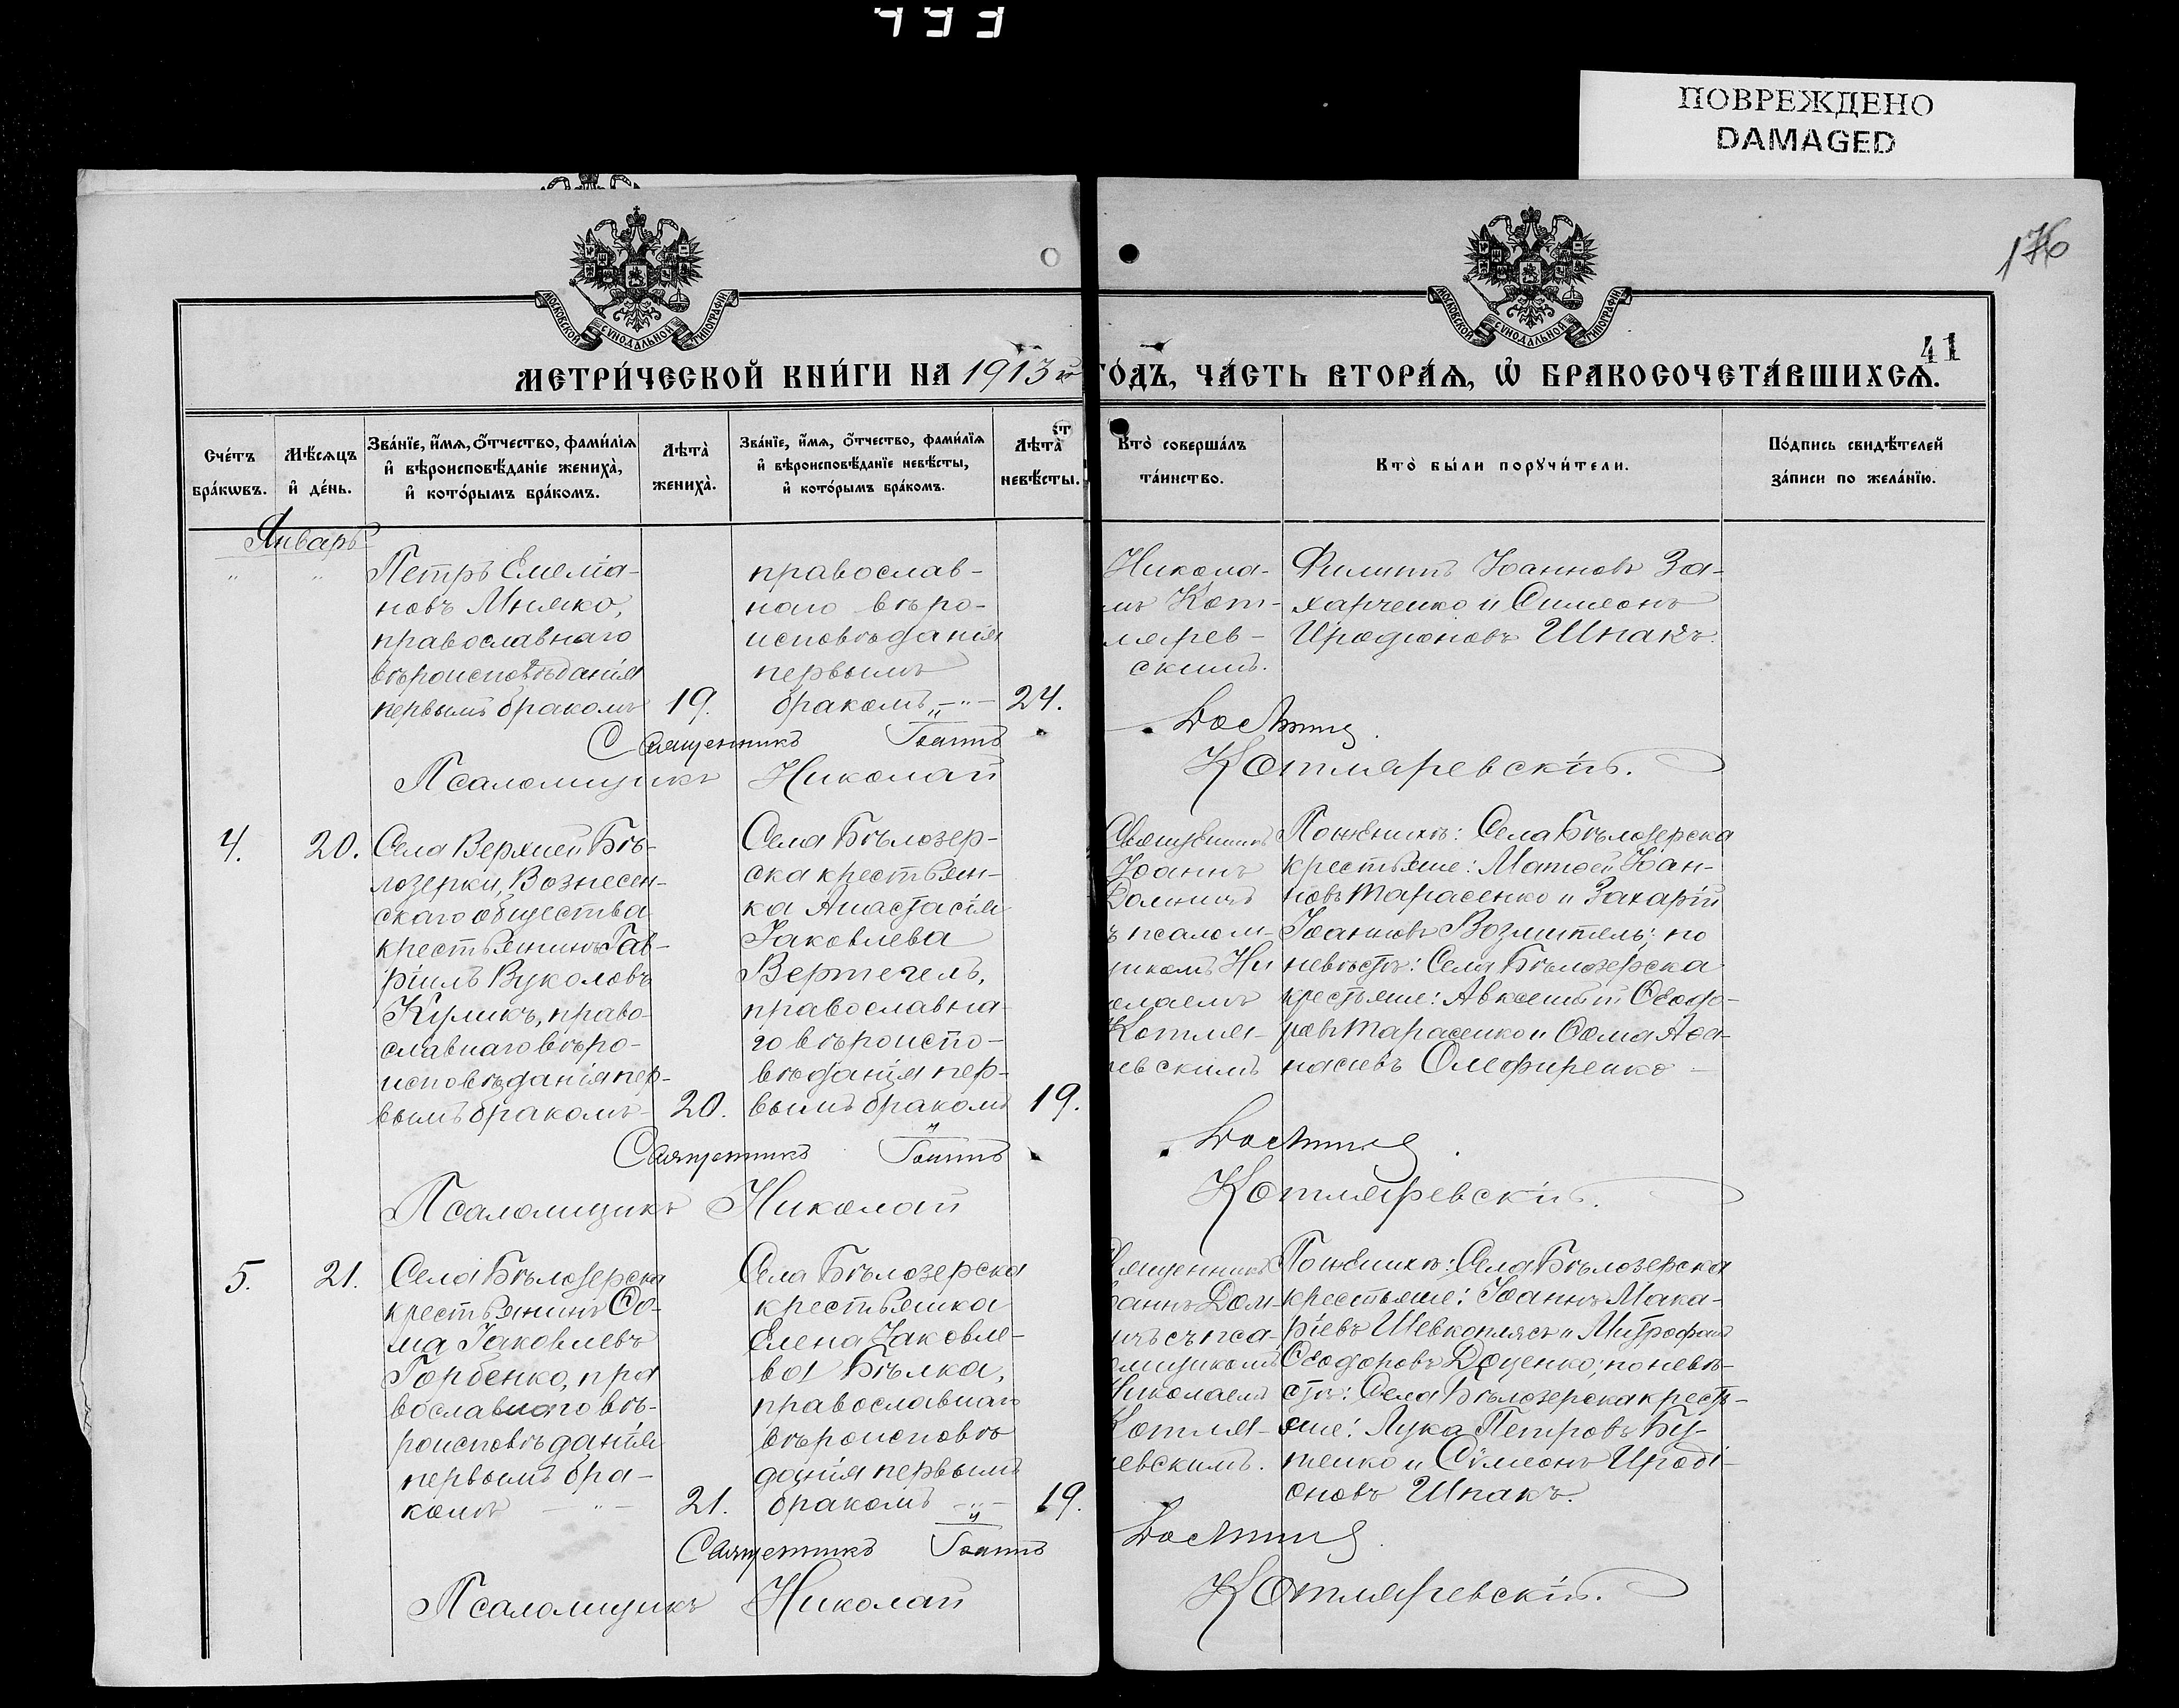 433
ПОВРЕЖДЕНО
DAMAGED
176
41
МОСКОВСКОЙ СѴНОДАЛЬНОЙ ТИПОГРАФІИ
МОСКОВСКОЙ СѴНОДАЛЬНОЙ ТИПОГРАФІИ
МЕТРИ́ЧЕСКОЙ КНИ́ГИ НА 1913й ГО́ДЪ, ЧА́СТЬ ВТОРА́Я, Ѡ БРАКОСОЧЕТА́ВШИХСЯ.
Сче́тъ бра́кѡвъ.
Мѣ́сяцъ и де́нь.
Зва́нїе, и́мя, о́тчество, фами́лїя и вѣроисповѣ́данїе жениха̀, и кото́рымъ бра́комъ.
Лѣта̀ жениха̀.
Зва́нїе, и́мя, о́тчество, фами́лїя и вѣроисповѣ́данїе невѣ́сты, и кото́рымъ бра́комъ.
Лѣта̀ невѣ́сты.
Кто̀ соверша́лъ та́инство.
Кто̀ бы́ли порꙋчи́тели.
По́дпись свидѣ́телей за́писи по жела́нїю.
Январь
Петръ Емелiа-
новъ Мняко,
православнаго
вѣроисповѣданія
первымъ бракомъ
19.
православ-
наго вѣро-
исповѣданія
первымъ
бракомъ
24.
Никола-
мъ Кот-
ляров-
скимъ.
Филиппъ Іоанновъ За-
харченко и Симеонъ
Иродіоновъ Шпакъ.
Священникъ Іоаннъ
Псаломщикъ Николай Котляревскій.
4.
20.
Села Верхней Бѣ-
лозерки, Вознесен-
скаго общества
крестьянинъ Гав-
ріилъ Вуколовъ
Куликъ, право-
славнаго вѣро-
исповѣданія пер-
вымъ бракомъ
20.
Села Бѣлозер-
ска крестьян-
ка Анастасія
Іаковлева
Вертегелъ,
православна-
го вѣроиспо-
вѣданія пер-
вымъ бракомъ
19.
Священникъ
Іоаннъ
ъ псалом-
щикомъ Ни
колаемъ
Котля-
ревскимъ
По женихѣ: Села Бѣлозерска
крестьяне: Матѳей Іоан-
новъ Тарасенко и Захарій
Іоанновъ Возлитель; по
невѣстѣ: Села Бѣлозерска
крестьяне: Авксентій Ѳеодо-
ровъ Тарасенко и Ѳома Аѳа-
насіевъ Олефиренко
Священникъ Іоаннъ
Псаломщикъ Николай Котляревскій.
5.
21.
Села Бѣлозерска
крестьянинъ Ѳо-
ма Іаковлевъ
Горбенко, пра
вославнаго вѣ-
роисповѣданія
первымъ бра-
комъ
21.
Села Бѣлозерска
крестьянка
Елена Іаковле-
ва Бѣлка,
православнаго
вѣроисповѣ
данія первымъ
бракомъ
19.
Священникъ
оаннъ Дом-
ичъ съ пса-
омщикомъ
Николаемъ
Котля-
ревскимъ.
По женихѣ: Села Бѣлозерска
крестьяне: Іоаннъ Мака-
ріевъ Шевкоплясъ и Митрофанъ
Ѳеодоровъ Доценко; по невѣ-
стѣ: Села Бѣлозерска кресть-
яне: Лука Петровъ Бу-
тенко и Сѵмеонъ Ироді-
оновъ Шпакъ.
Священникъ Іоаннъ
Псаломщикъ Николай Котляревскій.